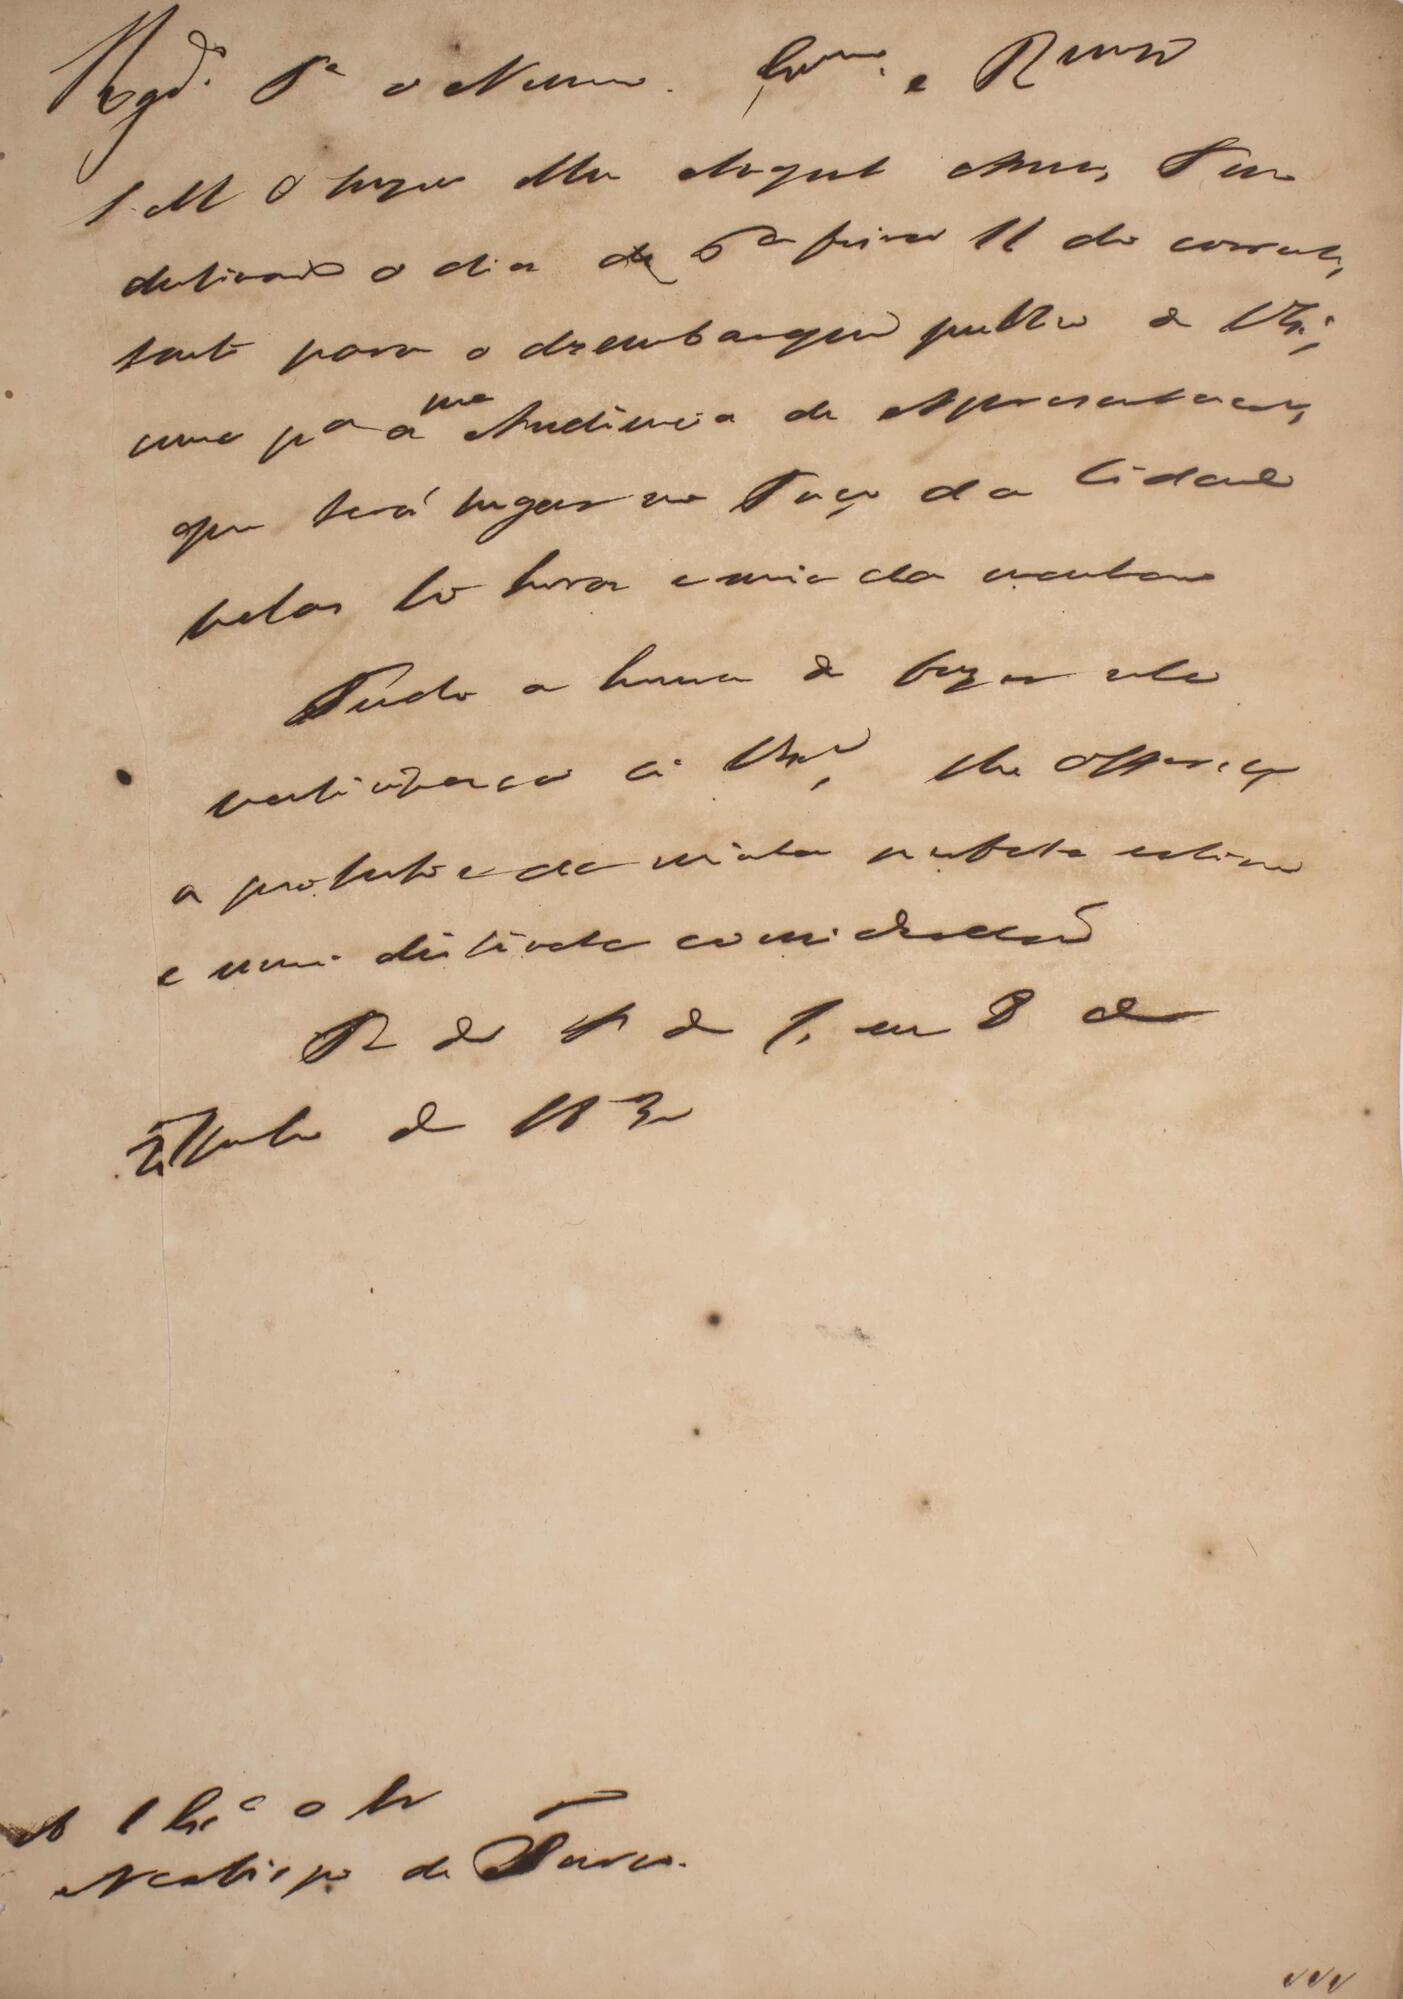 Regd. Pª o Nuncio. Exmo. e Rmo
S. M. O Imper Meu Augusto Amo, Tem
destinado o dia de 6ª feira 11 do corrente,
tanto para o dezembarque publico de V Exª,
como pª a mª Audiencia de Apresentacao,
que terá lugar no Paço da Cidade
pelas 10 horas e meia da manhaã
Tendo a honra de fazer esta
participacao á V Exª, lhe offereço
a protestos da minha perfeita estima
e mui distincta consideração
P. do R de J. em 8 de
Junho de 183
A S Exª o Sr
Arcebispo de Tarso.